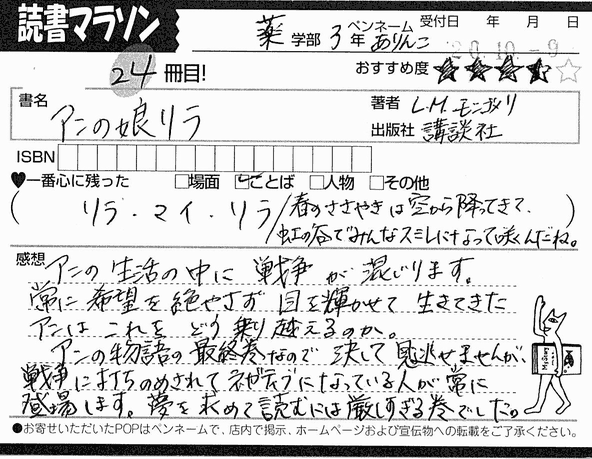 読書マラソン
薬 学部 3 年 ペンネーム ありんこ 受付日 年 月 日
24 冊目! おすすめ度
書名 アンの娘リラ
著者 L.M.モンゴメリ
出版社 講談社
ISBN
♥一番心に残った □場面 ☑ことば □人物 □その他
( リラ・マイ・リラ/春のささやきは空から降ってきて、
虹の谷でみんなスミレになって咲くんだね。 )
感想 アンの生活の中に戦争が混じります。
常に希望を絶やさず目を輝かせて生きてきた
アンはこれをどう乗り越えるのか。
アンの物語の最終巻なので決して見逃せませんが、
戦争に打ちのめされてネガティブになっている人が常に
登場します。夢を求めて読むには厳しすぎる巻でした。
●お寄せいただいたPOPはペンネームで、店内で掲示、ホームページおよび宣伝物への転載をご了承ください。